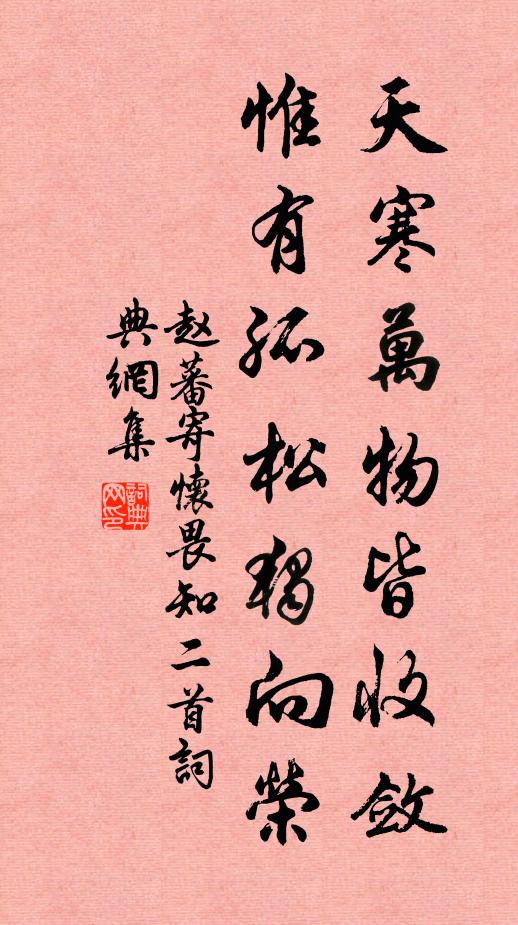 天寒萬物皆收斂
惟有孤松獨向榮
趙蕃寄懷畏知二首詞
典網集
詞典
网印